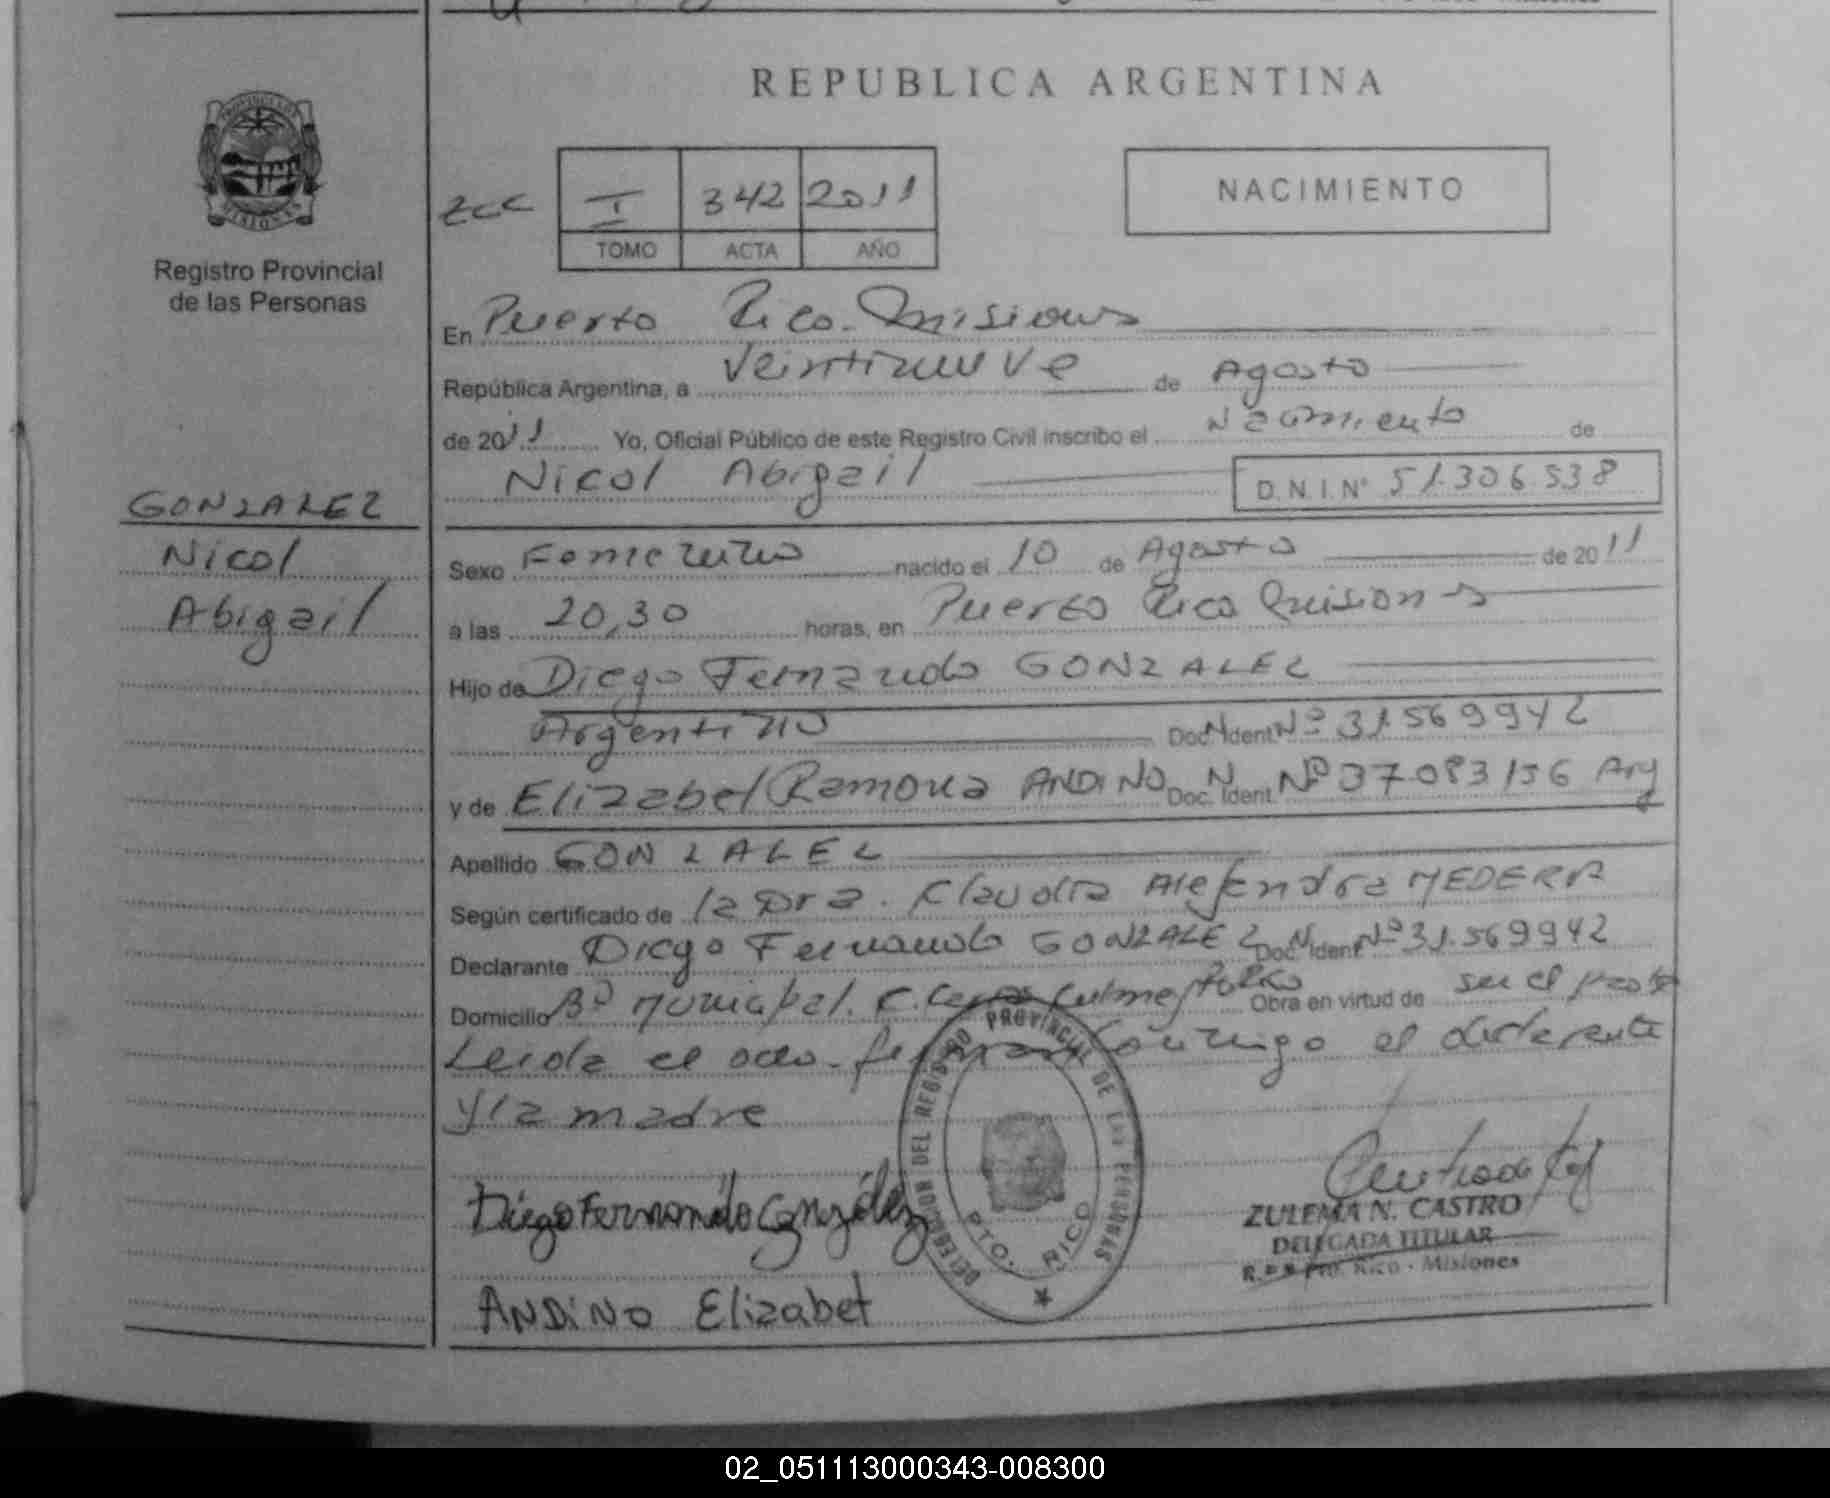 REPUBLICA ARGENTINA
PROVINCIA DE
MISIONES
Registro Provincial
de las Personas
I 342 2011
TOMO ACTA AÑO
NACIMIENTO
En Puerto Rico. Misiones
República Argentina, a Veintinueve de Agosto
de 2011 Yo, Oficial Público de este Registro Civil inscribo el Nacimiento de
Nicol Abigail D.N.I.Nº 51.306.538
GONZALEZ
Nicol
Abigail
Sexo Femenino nacido el 10 de Agosto de 2011
a las 20,30 horas, en Puerto Rico Misiones
Hijo de Diego Fernando GONZALEZ
Argentino Doc. Ident. Nº 31.569942
y de Elizabet Ramona ANDINO Doc. Ident. Nº 37083156 Arg
Apellido GONZALEZ
Según certificado de la Dra. Claudia Alejandra MEDERA
Declarante Diego Fernando GONZALEZ Doc. Ident. Nº 31.569942
Domicilio Bº Municipal. Obra en virtud de ser el padre
Leida el acta. firman conmigo el declarante
y la madre
Diego Fernando González
ANDiNO Elizabet
DELEGACION DEL REGISTRO PROVINCIAL DE LAS PERSONAS
PTO. RICO
ZULEMA N. CASTRO
DELEGADA TITULAR
Pto. Rico - Misiones
02_051113000343-008300